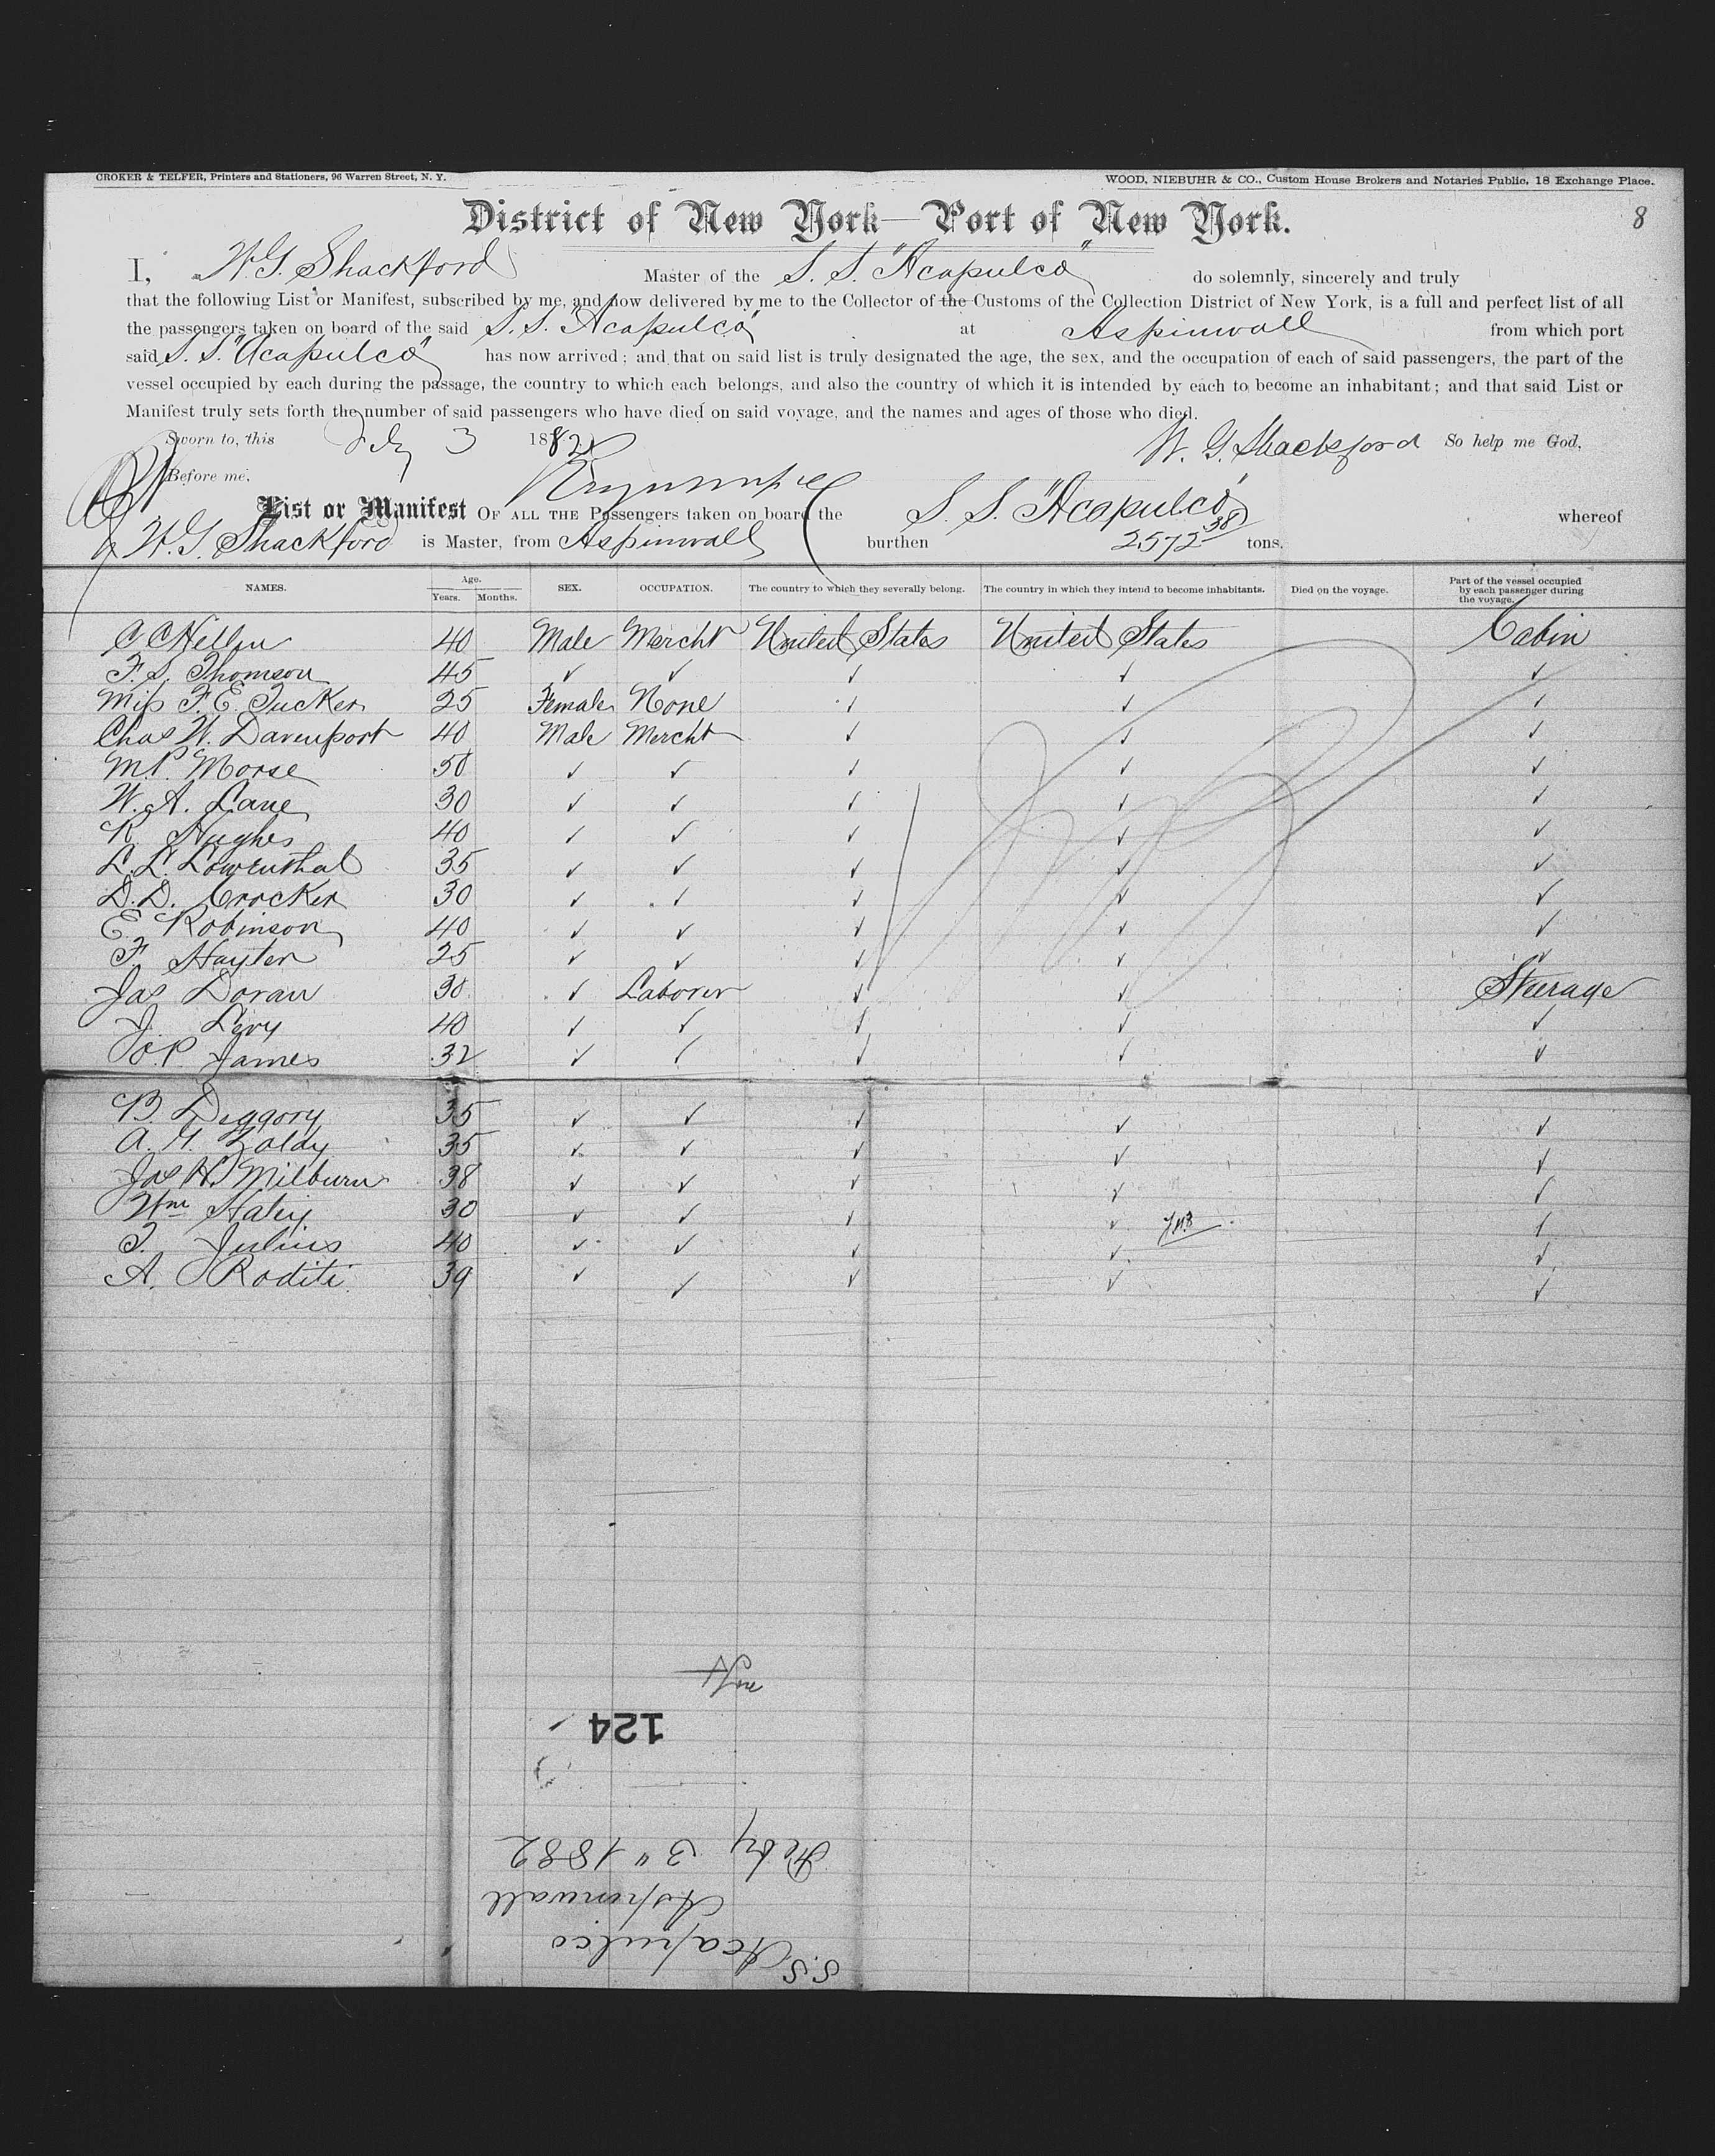 CROKER & TELFER, Printers and Stationers, 96 Warren Street, N. Y. WOOD, NIEBUHR & CO., Custom House Brokers and Notaries Public, 18 Exchange Place.
District of New York—Port of New York. 8
I, W. G. Shackford Master of the S. S. "Acapulco" do solemnly, sincerely and truly
that the following List or Manifest, subscribed by me, and now delivered by me to the Collector of the Customs of the Collection District of New York, is a full and perfect list of all
the passengers taken on board of the said S. S. "Acapulco" at Aspinwall from which port
said S. S. "Acapulco" has now arrived; and that on said list is truly designated the age, the sex, and the occupation of each of said passengers, the part of the
vessel occupied by each during the passage, the country to which each belongs, and also the country of which it is intended by each to become an inhabitant; and that said List or
Manifest truly sets forth the number of said passengers who have died on said voyage, and the names and ages of those who died.
Sworn to, this Feby 3 1882 W. G. Shackford So help me God,
Before me,
List or Manifest OF ALL THE Passengers taken on board the S. S. "Acapulco" whereof
W. G. Shackford is Master, from Aspinwall burthen 2572 38 tons.
NAMES. Age. Years. Months. SEX. OCCUPATION. The country to which they severally belong. The country in which they intend to become inhabitants. Died on the voyage. Part of the vessel occupied by each passenger during the voyage.
C C 40 Male Mercht United States United States Cabin
F. S. Thomson 45 ✓ ✓ ✓ ✓ ✓
Miss F. E. Tucker 25 Female None ✓ ✓ ✓
Chas W. Davenport 40 Male Mercht ✓ ✓ ✓
M. P. Morse 50 ✓ ✓ ✓ ✓ ✓
W. A. Lane 30 ✓ ✓ ✓ ✓ ✓
R Hughes 40 ✓ ✓ ✓ ✓ ✓
L. L. Lowenthal 35 ✓ ✓ ✓ ✓ ✓
D. D. Crocker 30 ✓ ✓ ✓ ✓ ✓
E. Robinson 40 ✓ ✓ ✓ ✓ ✓
F. Hayten 25 ✓ ✓ ✓ ✓ ✓
Jas Doran 30 ✓ Laborer ✓ ✓ Steerage
J. Levy 40 ✓ ✓ ✓ ✓ ✓
O. P. James 32 ✓ ✓ ✓ ✓ ✓
B. Deggory 35 ✓ ✓ ✓ ✓ ✓
A. G. Zaldy 35 ✓ ✓ ✓ ✓ ✓
Jas H. Milburn 38 ✓ ✓ ✓ ✓ ✓
Wm Haley 30 ✓ ✓ ✓ ✓ ✓
J. Julius 40 ✓ ✓ ✓ ✓ ✓
A. Roditi 39 ✓ ✓ ✓ ✓ ✓
S.S. Acapulco
Aspinwall
Feby 3" 1882
124